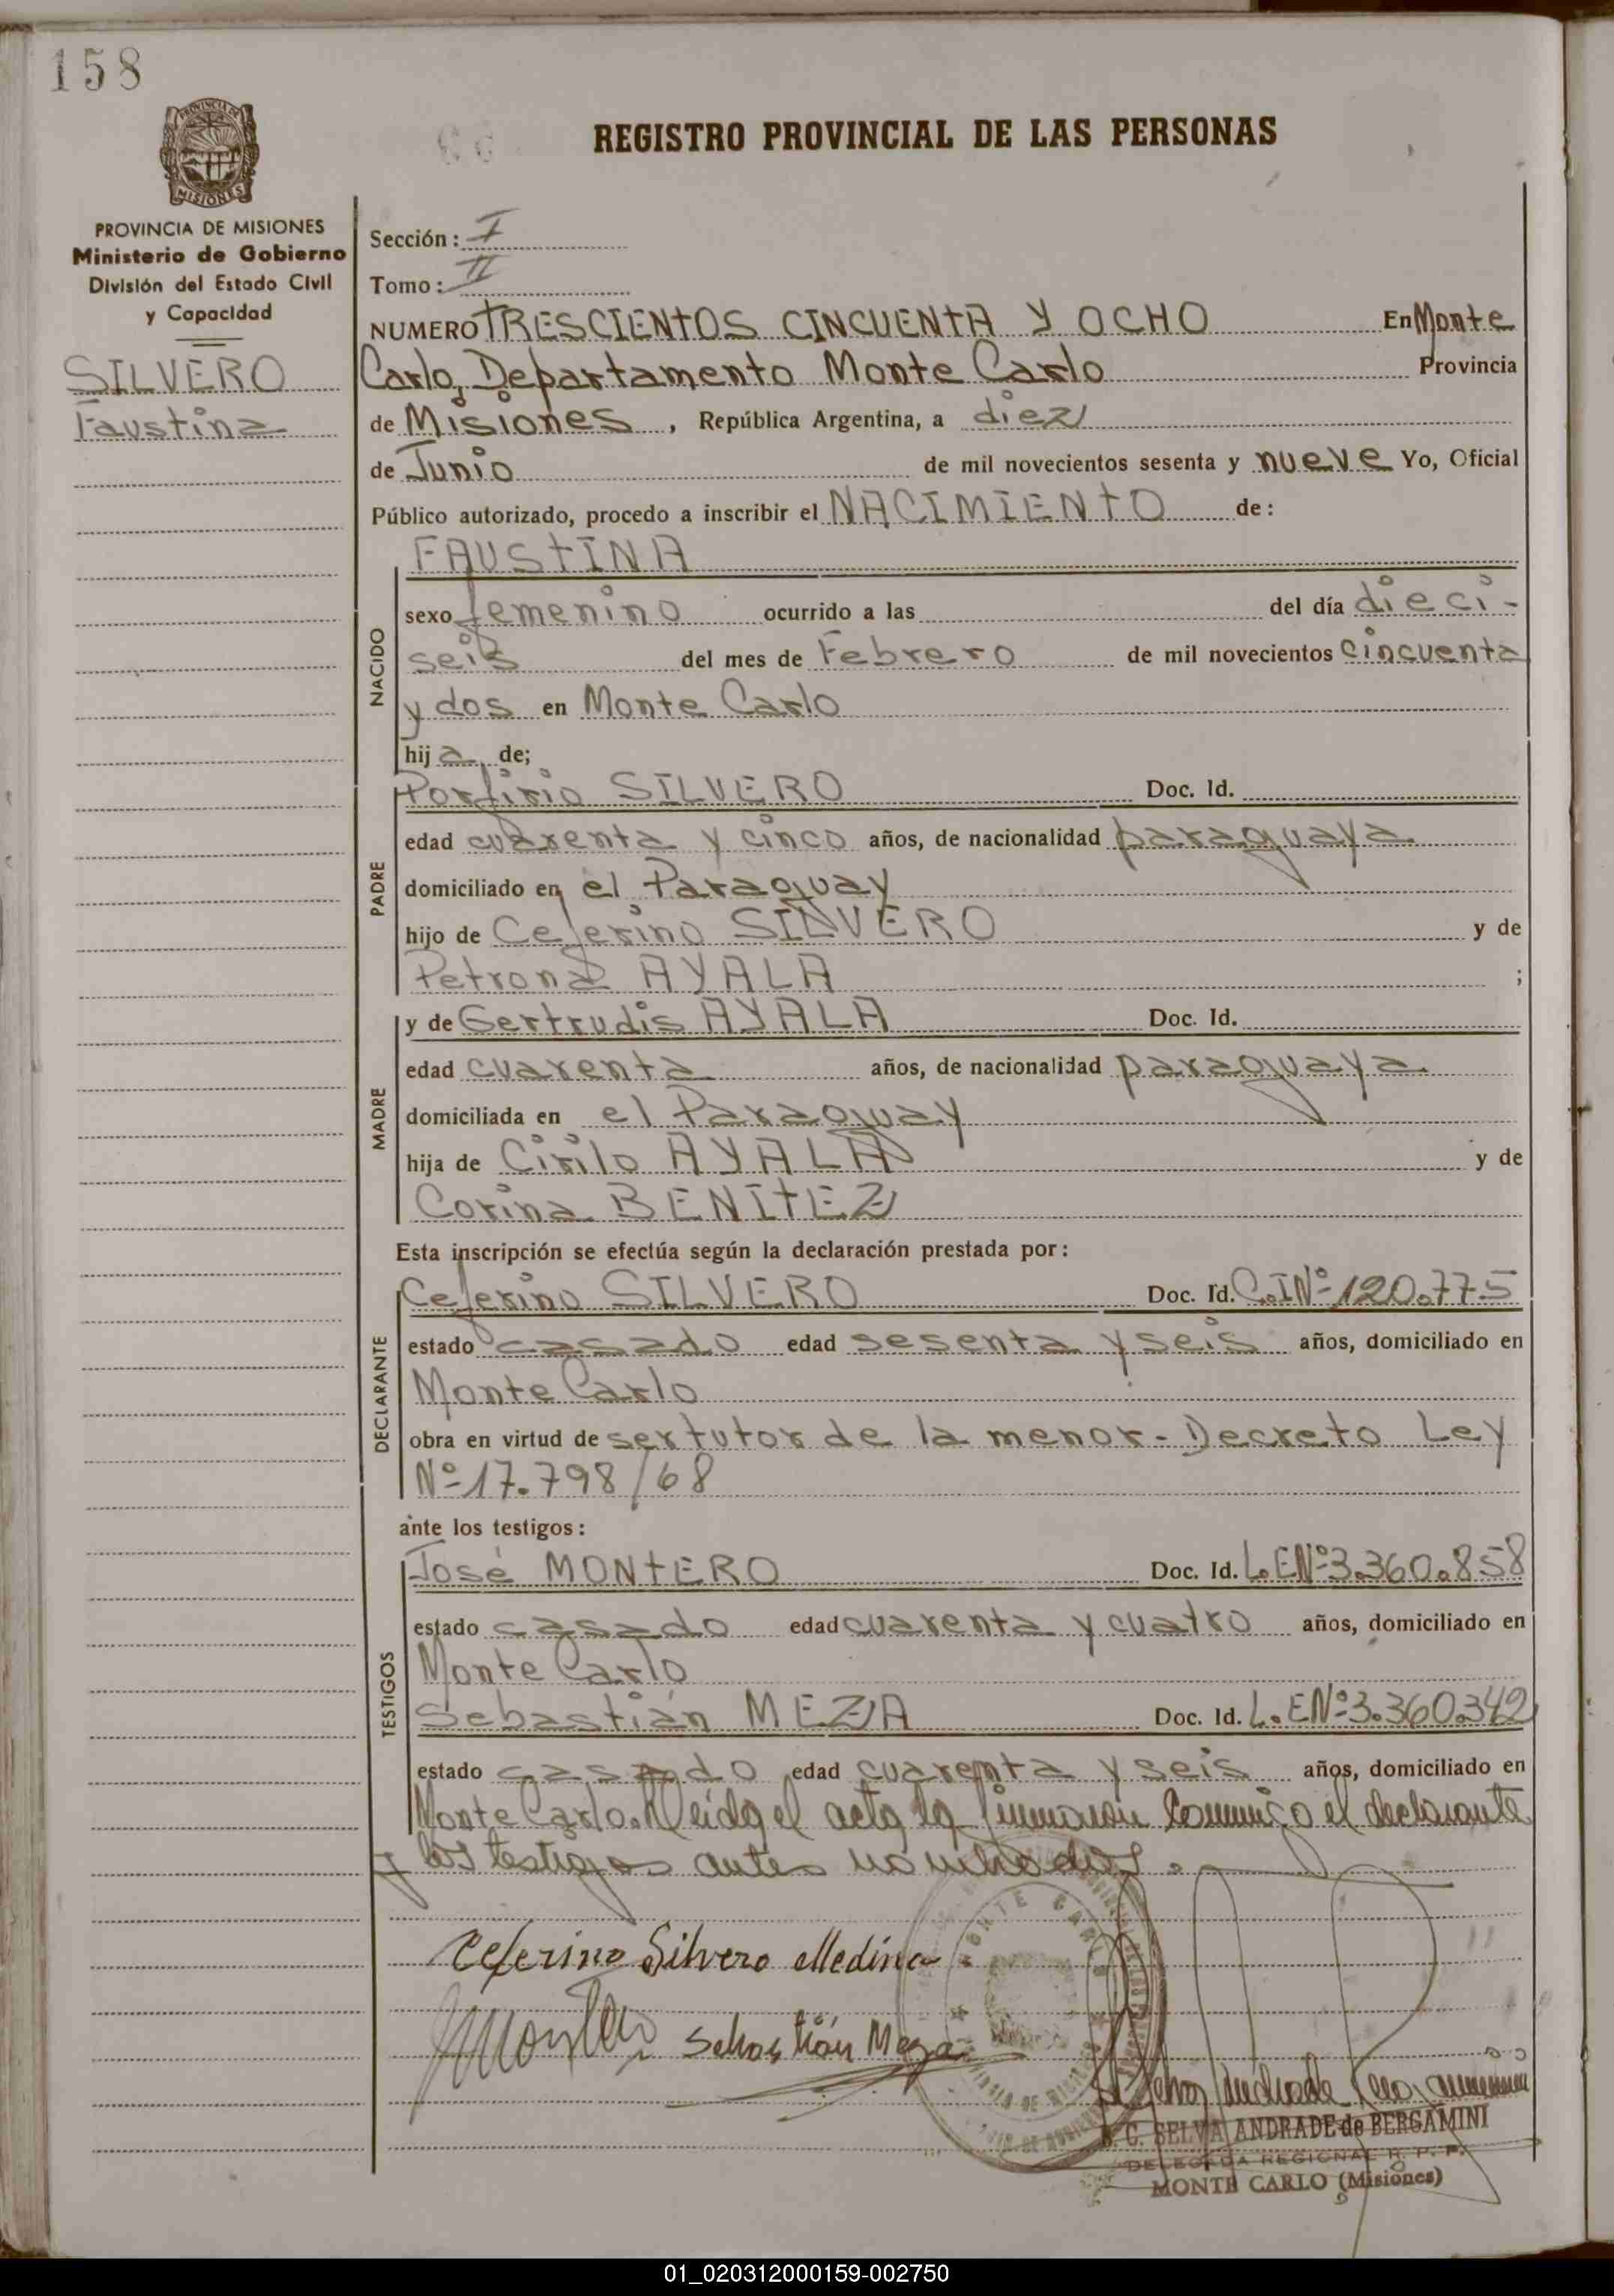 158
REGISTRO PROVINCIAL DE LAS PERSONAS
PROVINCIA DE MISIONES
Ministerio de Gobierno
División del Estado Civil
y Capacidad
SILVERO
Faustina
Sección: I
Tomo: II
NUMERO TRESCIENTOS CINCUENTA Y OCHO En Monte
Carlo, Departamento Monte Carlo Provincia
de Misiones, República Argentina, a diez
de Junio de mil novecientos sesenta y nueve Yo, Oficial
Público autorizado, procedo a inscribir el NACIMIENTO de:
FAUSTINA
NACIDO
sexo femenino ocurrido a las del día dieci-
seis del mes de Febrero de mil novecientos cincuenta
y dos en Monte Carlo
hija de;
PADRE
Porfirio SILVERO Doc. Id.
edad cuarenta y cinco años, de nacionalidad paraguaya
domiciliado en el Paraguay
hijo de Ceferino SILVERO y de
Petrona AYALA ;
MADRE
y de Gertrudis AYALA Doc. Id.
edad cuarenta años, de nacionalidad paraguaya
domiciliada en el Paraguay
hija de Cirilo AYALA y de
Corina BENITEZ
Esta inscripción se efectúa según la declaración prestada por:
DECLARANTE
Ceferino SILVERO Doc. Id. C.I Nº 120.775
estado casado edad sesenta y seis años, domiciliado en
Monte Carlo
obra en virtud de ser tutor de la menor - Decreto Ley
Nº 17.798/68
ante los testigos:
TESTIGOS
José MONTERO Doc. Id. L.E Nº 3.360.858
estado casado edad cuarenta y cuatro años, domiciliado en
Monte Carlo
Sebastián MEZA Doc. Id. L.E Nº 3.360.342
estado casado edad cuarenta y seis años, domiciliado en
Monte Carlo. Leida el acta la firmaron conmigo el declarante
y los testigos antes nombrados.
Ceferino Silvero Medina
Sebastián Meza
MONTE CARLO
C. SELVA ANDRADE de BERGAMINI
DELEGADA REGIONAL R. P. P.
MONTE CARLO (Misiones)
01_020312000159-002750